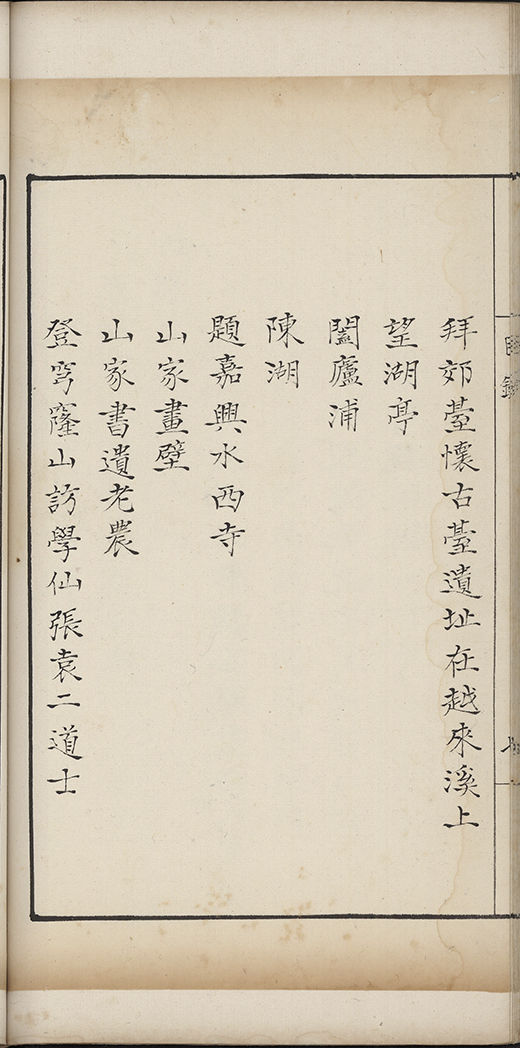 拜郊臺懷古臺遺址在越來溪上
望湖亭
闔廬浦
陳湖
題嘉興水西寺
山家畫壁
山家書遺老農
登穹窿山訪學仙張袁二道士